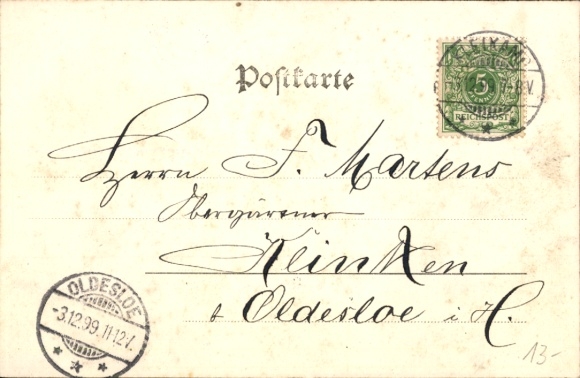 Postkarte
5
REICHSPOST
Herrn F. Martens
Obergärtner
Klinken
b Oldesloe i. H.
OLDESLOE
-3.12.99.11-12V.
13-